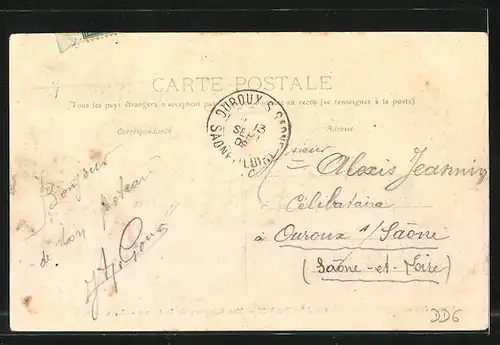 CARTE POSTALE
Tous les pays étrangers n'acceptent pas au recto (se renseigner à la poste)
Correspondance
Adresse
OUROUX-S-SAONE
13
SAONE-&-LOIRE
Monsieur
Alexis Jeannin
Célibataire
à Ouroux s/ Saône
(Saône-et-Loire)
Bonjour
de ton poteau
DD6